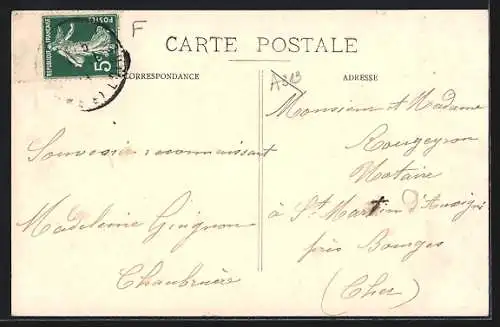 F
REPUBLIQUE FRANÇAISE
POSTES
5c
CARTE POSTALE
CORRESPONDANCE
ADRESSE
A313
Souvenir reconnaissant
Madeleine Guignon
Chaubruère
Monsieur et Madame
Rougeyron
Notaire
à St Martin d'Auxigny
près Bourges
(Cher)